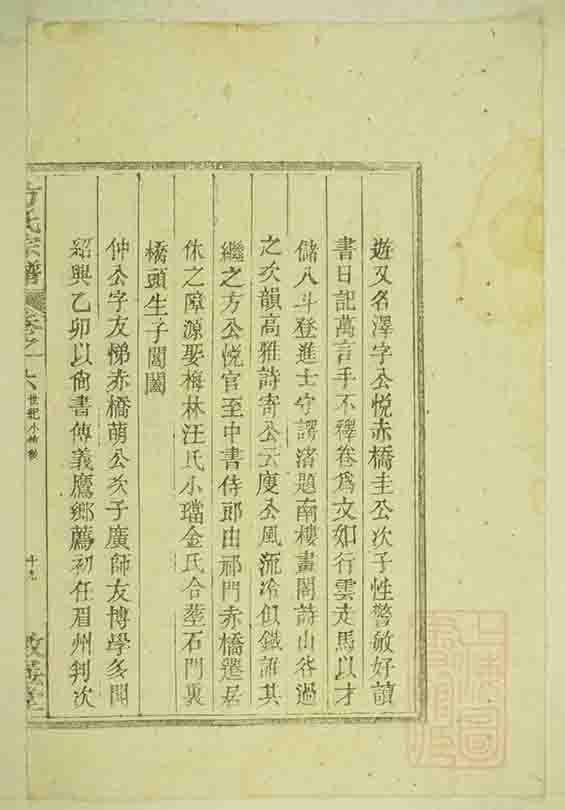 遊又名澤字公悅赤橋圭公次子性警敏好讀
書日記萬言手不釋卷爲文如行雲走馬以才
儲八斗登進士守諤渚題南樓畫閣詩山谷過
之次韻高雅詩寄公云庾公風流冷似鐵誰其
繼之方公悅官至中書侍郎由祁門赤橋遷居
休之障源娶梅林汪氏小璫金氏合塟石門裏
橋頭生子閭闔
仲公字友悌赤橋萌公次子廣師友博學多聞
紹興乙卯以尙書傳義鷹鄉薦初任眉州判次
方氏宗譜 卷之十六 世紀小傳 十九